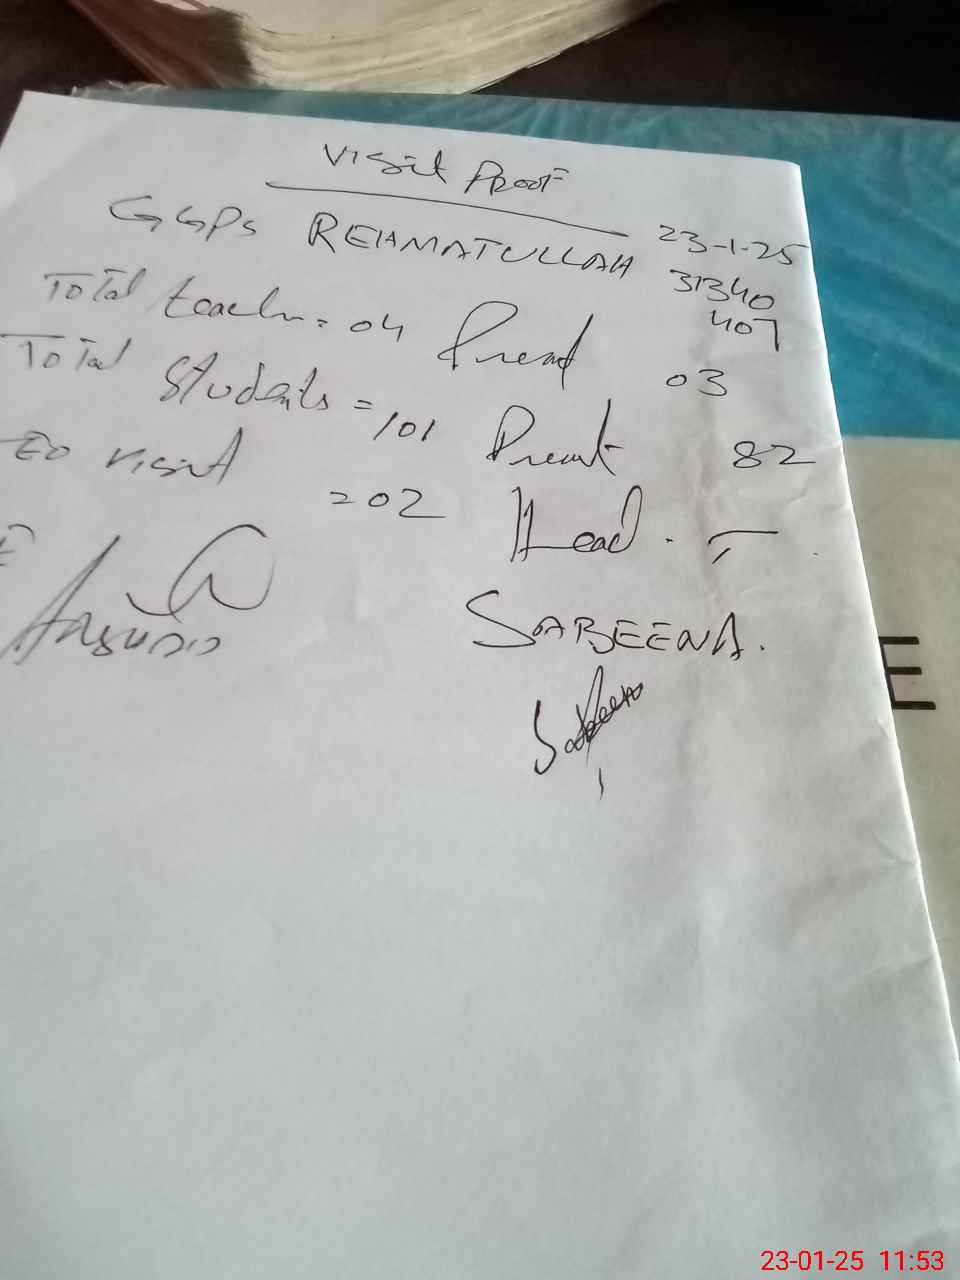 Visit Proof
GGPS REHMATULLAH 23-1-25
31340
407
Total teacher = 04 Present 03
Total Students = 101 Present 82
EO visit = 02 Head.
SABEENA.
Sabeena
E
23-01-25 11:53